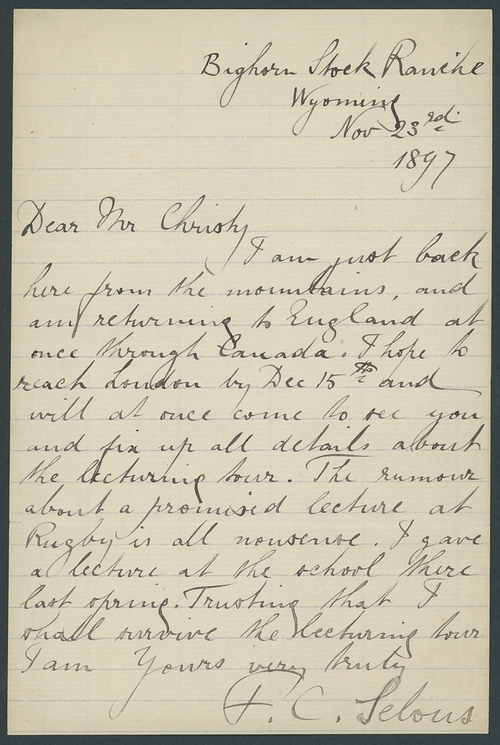 Bighorn Stock Ranche
Wyoming
Nov 23rd
1897
Dear Mr Christy
I am just back
here from the mountains, and
am returning to England at
once through Canada. I hope to
reach London by Dec 15th and
will at once come to see you
and fix up all details about
the lecturing tour. The rumour
about a promised lecture at
Rugby is all nonsense. I gave
a lecture at the school there
last spring. Trusting that I
shall survive the lecturing tour
I am Yours very truly
F. C. Selous